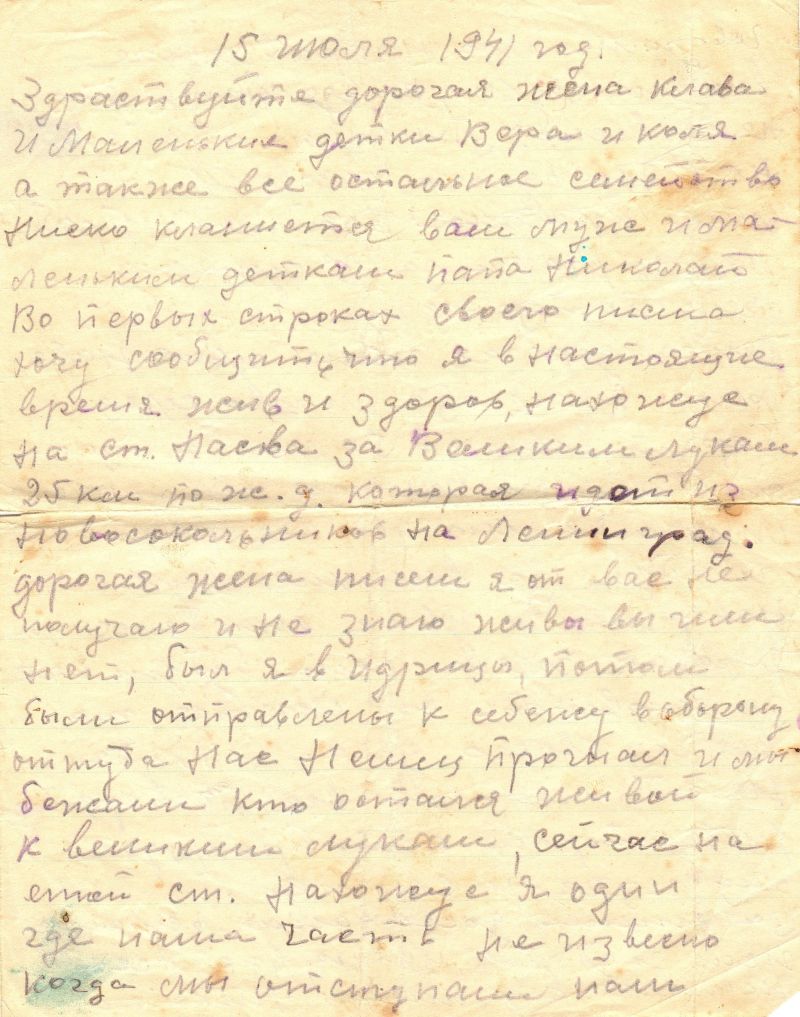 15 июля 1941 год.
Здраствуйте дорогая жена Клава
и Маленькие детки Вера и Коля
а также все остальное семейство
Ниско кланиется ваш муж и ма-
леньким деткам папа Николай
Во первых строках своего писма
хочу сообщить, что я в настоящие
время жив и здоров, нахожусе
на ст. Насва за Великим Лукам
25 км по ж.д. которая идет из
Новосокольников на Ленинград.
дорогая жена писем я от вас не
получаю и не знаю живы вы или
нет, был я в Идрицы, потом
были отправлены к себежу в оборону
оттуда нас Немец прогнал и мы
бежали кто остался живой
к великим Лукам, сейчас на
етой ст. нахожусе я один
где наша часть не извесно
когда мы отступали нам